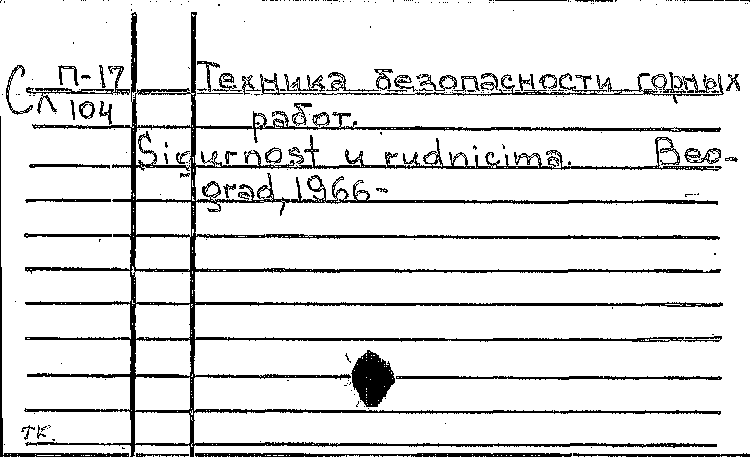 Сл П-17 Техника безопасности горных
104 работ.
Sigurnost u rudnicima. Beo-
grad, 1966-
ТК.